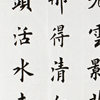 光雲影
那得清如
頭活水